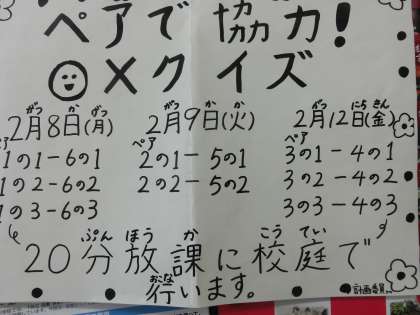 ペアで協力!
○×クイズ
2月8日(月) 2月9日(火) 2月12日(金)
ペア ペア ペア
1の1-6の1 2の1-5の1 3の1-4の1
1の2-6の2 2の2-5の2 3の2-4の2
1の3-6の3 3の3-4の3
20分放課に校庭で
行います。
計画委員